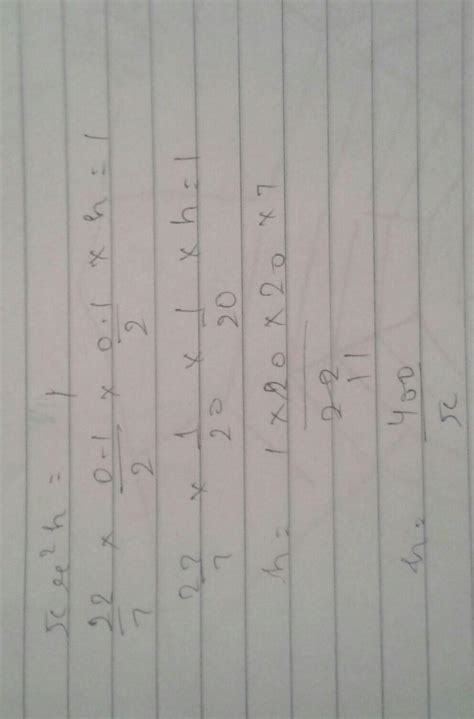 πr²h = 1
22/7 × 0.1/2 × 0.1/2 × h = 1
22/7 × 1/20 × 1/20 × h = 1
h = 1 × 20 × 20 × 7
22
11
h = 400/π